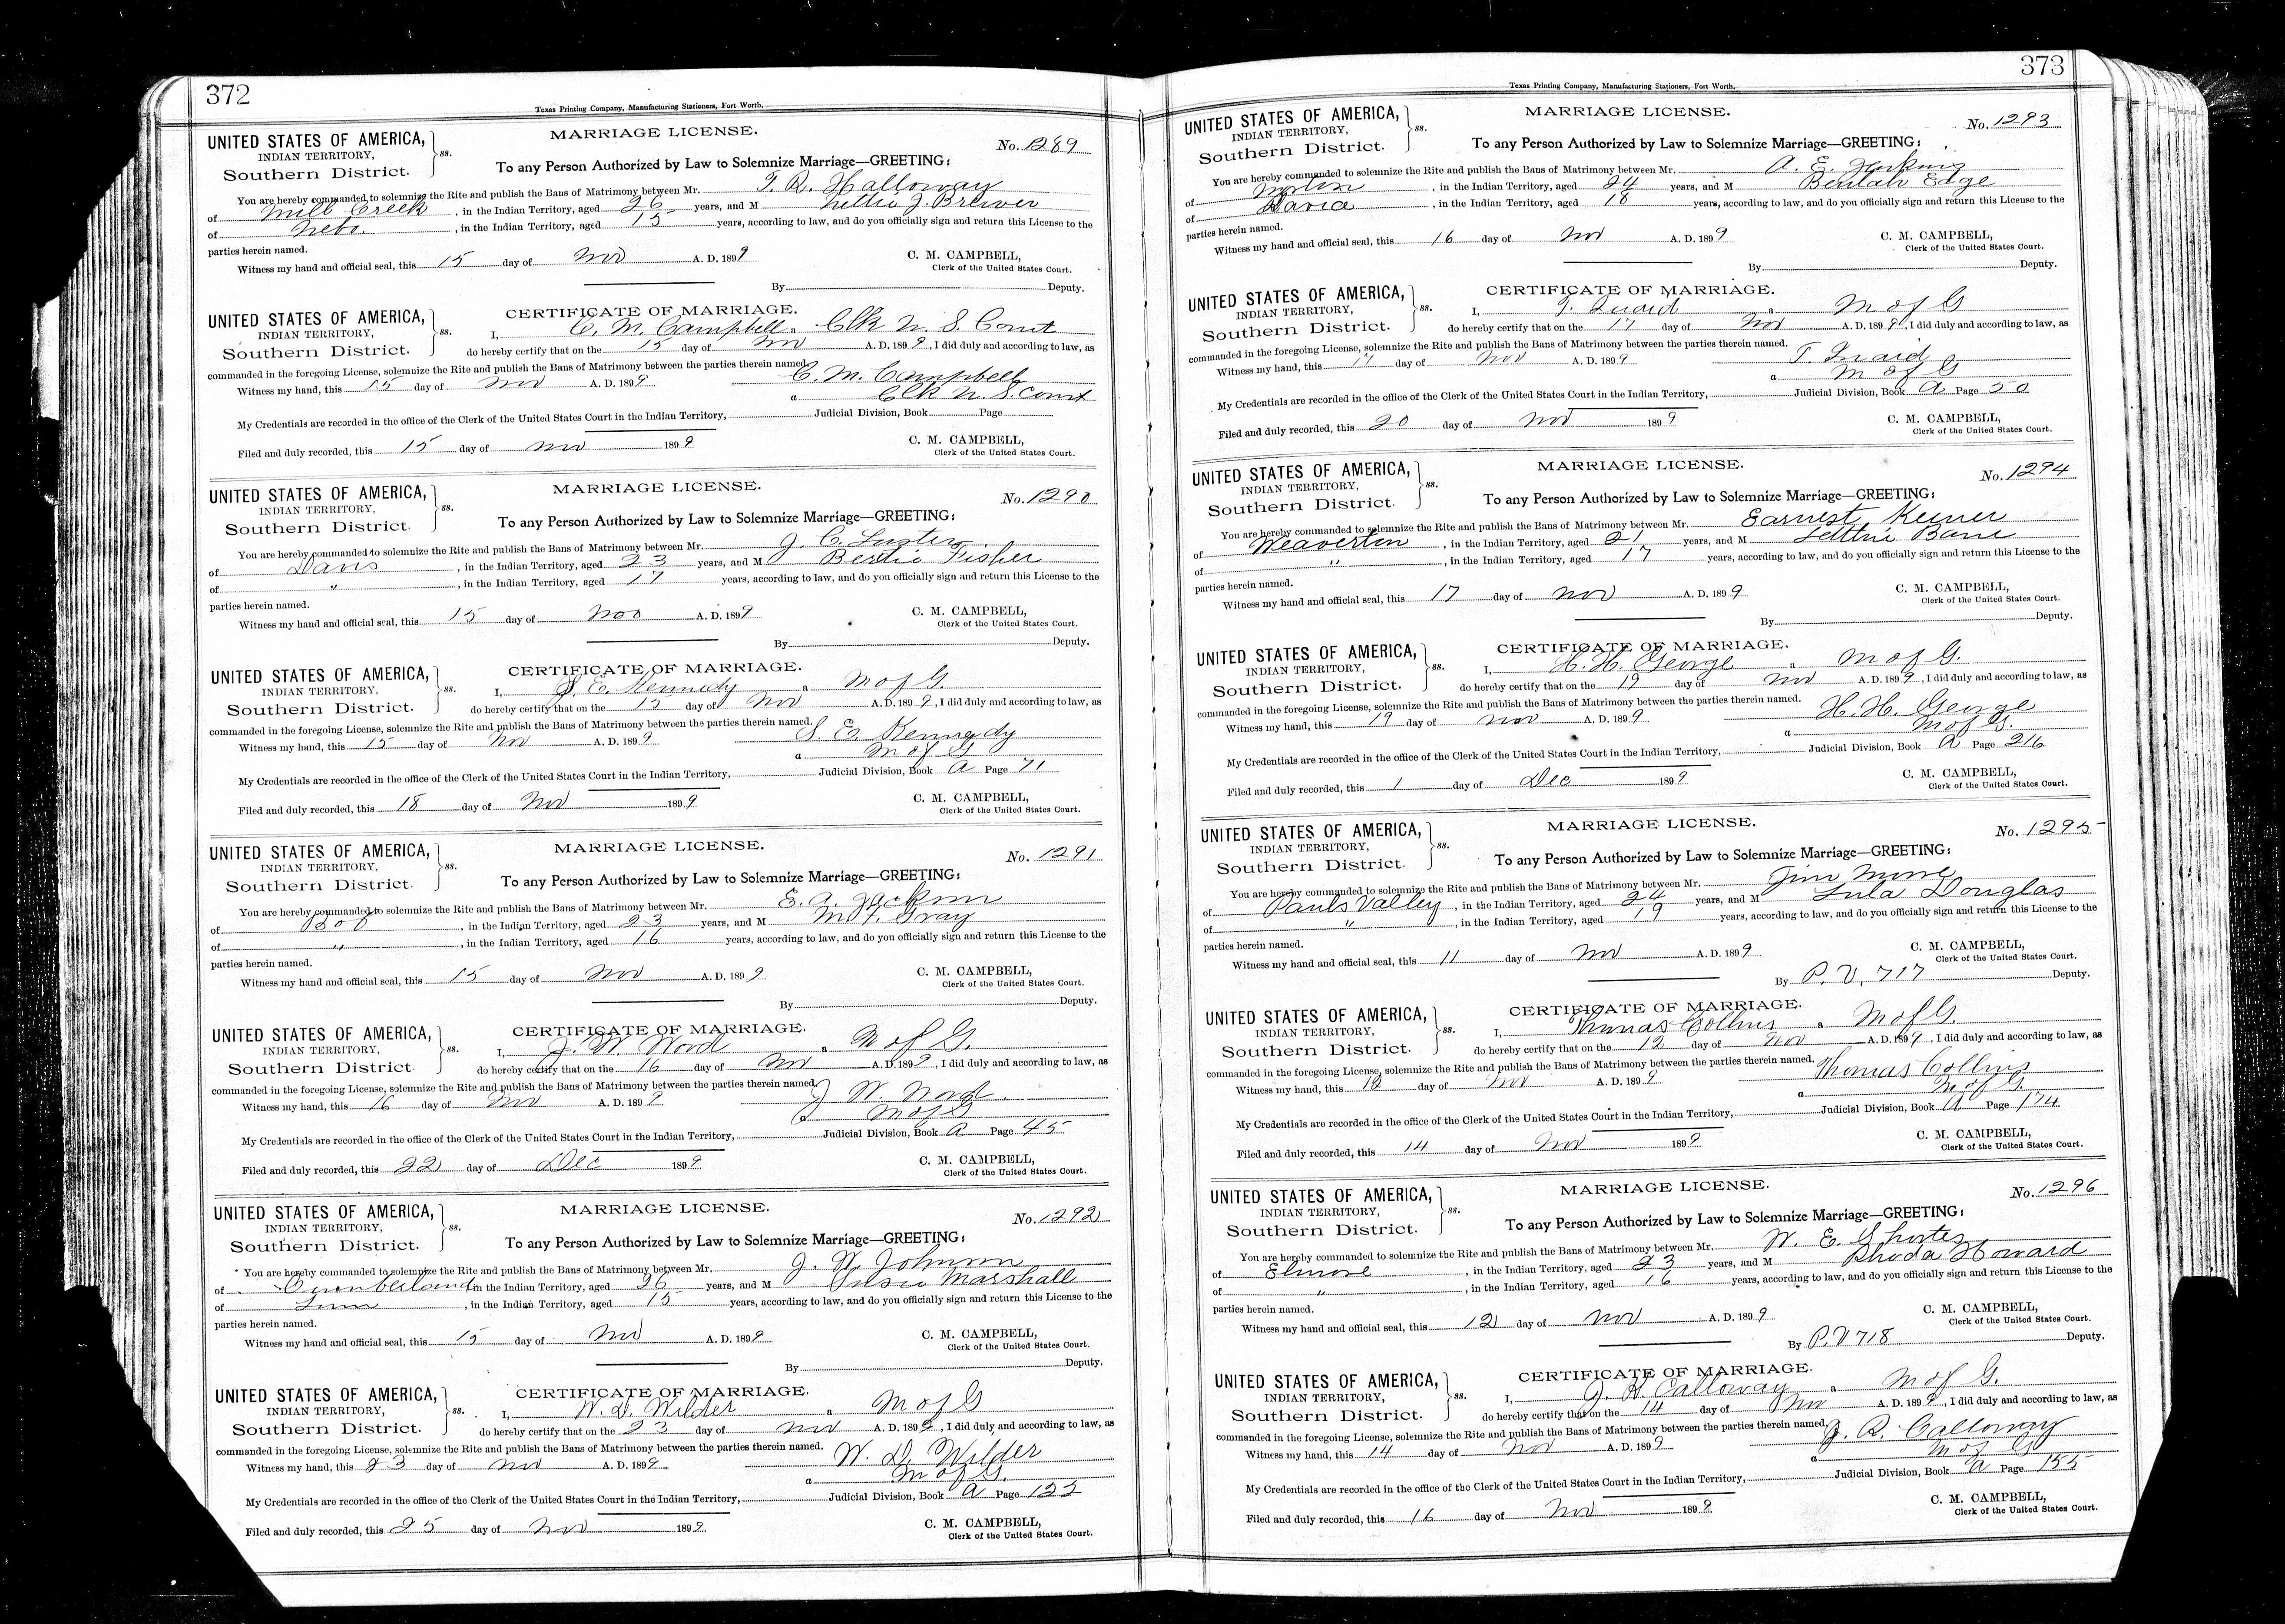 372
Texas Printing Company, Manufacturing Stationers, Fort Worth.
UNITED STATES OF AMERICA,
INDIAN TERRITORY,
Southern District.
ss.
MARRIAGE LICENSE.
No. 1289
To any Person Authorized by Law to Solemnize Marriage—GREETING:
You are hereby commanded to solemnize the Rite and publish the Bans of Matrimony between Mr. T. R. Halloway
of Mill Creek, in the Indian Territory, aged 26 years, and M Nellie J. Brewer
of Nebo., in the Indian Territory, aged 15 years, according to law, and do you officially sign and return this License to the
parties herein named.
Witness my hand and official seal, this 15 day of Nov A. D. 1899
C. M. CAMPBELL,
Clerk of the United States Court.
By Deputy.
UNITED STATES OF AMERICA,
INDIAN TERRITORY,
Southern District.
ss.
CERTIFICATE OF MARRIAGE.
I, C. M. Campbell a Clk U. S. Court
do hereby certify that on the 15 day of Nov A. D. 1899, I did duly and according to law, as
commanded in the foregoing License, solemnize the Rite and publish the Bans of Matrimony between the parties therein named.
Witness my hand, this 15 day of Nov A. D. 1899 C. M. Campbell
a Clk U. S. Court
My Credentials are recorded in the office of the Clerk of the United States Court in the Indian Territory, Judicial Division, Book Page
Filed and duly recorded, this 15 day of Nov 1899
C. M. CAMPBELL,
Clerk of the United States Court.
UNITED STATES OF AMERICA,
INDIAN TERRITORY,
Southern District.
ss.
MARRIAGE LICENSE.
No. 1290
To any Person Authorized by Law to Solemnize Marriage—GREETING:
You are hereby commanded to solemnize the Rite and publish the Bans of Matrimony between Mr. J. C.
of Davis, in the Indian Territory, aged 23 years, and M Fisher
of ", in the Indian Territory, aged 17 years, according to law, and do you officially sign and return this License to the
parties herein named.
Witness my hand and official seal, this 15 day of Nov A. D. 1899
C. M. CAMPBELL,
Clerk of the United States Court.
By Deputy.
UNITED STATES OF AMERICA,
INDIAN TERRITORY,
Southern District.
ss.
CERTIFICATE OF MARRIAGE.
I, S. E. Kennedy a M of G.
do hereby certify that on the 15 day of Nov A. D. 1899, I did duly and according to law, as
commanded in the foregoing License, solemnize the Rite and publish the Bans of Matrimony between the parties therein named.
Witness my hand, this 15 day of Nov A. D. 1899 S. E. Kennedy
a M of G
My Credentials are recorded in the office of the Clerk of the United States Court in the Indian Territory, Judicial Division, Book A Page 71
Filed and duly recorded, this 18 day of Nov 1899
C. M. CAMPBELL,
Clerk of the United States Court.
UNITED STATES OF AMERICA,
INDIAN TERRITORY,
Southern District.
ss.
MARRIAGE LICENSE.
No. 1291
To any Person Authorized by Law to Solemnize Marriage—GREETING:
You are hereby commanded to solemnize the Rite and publish the Bans of Matrimony between Mr. E. A. Jackson
of Bob, in the Indian Territory, aged 23 years, and M Gray
of ", in the Indian Territory, aged 16 years, according to law, and do you officially sign and return this License to the
parties herein named.
Witness my hand and official seal, this 15 day of Nov A. D. 1899
C. M. CAMPBELL,
Clerk of the United States Court.
By Deputy.
UNITED STATES OF AMERICA,
INDIAN TERRITORY,
Southern District.
ss.
CERTIFICATE OF MARRIAGE.
I, J. W. Word a M of G.
do hereby certify that on the 16 day of Nov A. D. 1899, I did duly and according to law, as
commanded in the foregoing License, solemnize the Rite and publish the Bans of Matrimony between the parties therein named.
Witness my hand, this 16 day of Nov A. D. 1899 J W. Word
a M of G
My Credentials are recorded in the office of the Clerk of the United States Court in the Indian Territory, Judicial Division, Book A Page 45
Filed and duly recorded, this 22 day of Dec 1899
C. M. CAMPBELL,
Clerk of the United States Court.
UNITED STATES OF AMERICA,
INDIAN TERRITORY,
Southern District.
ss.
MARRIAGE LICENSE.
No. 1292
To any Person Authorized by Law to Solemnize Marriage—GREETING:
You are hereby commanded to solemnize the Rite and publish the Bans of Matrimony between Mr. J. W. Johnson
of Cumberland in the Indian Territory, aged 26 years, and M Marshall
of Linn, in the Indian Territory, aged 15 years, according to law, and do you officially sign and return this License to the
parties herein named.
Witness my hand and official seal, this 15 day of Nov A. D. 1899
C. M. CAMPBELL,
Clerk of the United States Court.
By Deputy.
UNITED STATES OF AMERICA,
INDIAN TERRITORY,
Southern District.
ss.
CERTIFICATE OF MARRIAGE.
I, W. D. Wilder a M of G
do hereby certify that on the 23 day of Nov A. D. 1899, I did duly and according to law, as
commanded in the foregoing License, solemnize the Rite and publish the Bans of Matrimony between the parties therein named.
Witness my hand, this 23 day of Nov A. D. 1899 W. D. Wilder
a M of G.
My Credentials are recorded in the office of the Clerk of the United States Court in the Indian Territory, Judicial Division, Book A Page
Filed and duly recorded, this 25 day of Nov 1899
C. M. CAMPBELL,
Clerk of the United States Court.
373
Texas Printing Company, Manufacturing Stationers, Fort Worth.
UNITED STATES OF AMERICA,
INDIAN TERRITORY,
Southern District.
ss.
MARRIAGE LICENSE.
No. 1293
To any Person Authorized by Law to Solemnize Marriage—GREETING:
You are hereby commanded to solemnize the Rite and publish the Bans of Matrimony between Mr. A. E.
of, in the Indian Territory, aged 24 years, and M Beulah Edge
of, in the Indian Territory, aged 18 years, according to law, and do you officially sign and return this License to the
parties herein named.
Witness my hand and official seal, this 16 day of Nov A. D. 1899
C. M. CAMPBELL,
Clerk of the United States Court.
By Deputy.
UNITED STATES OF AMERICA,
INDIAN TERRITORY,
Southern District.
ss.
CERTIFICATE OF MARRIAGE.
I, T. a M of G
do hereby certify that on the 17 day of Nov A. D. 1899, I did duly and according to law, as
commanded in the foregoing License, solemnize the Rite and publish the Bans of Matrimony between the parties therein named.
Witness my hand, this 17 day of Nov A. D. 1899 T.
a M of G
My Credentials are recorded in the office of the Clerk of the United States Court in the Indian Territory, Judicial Division, Book A Page 50
Filed and duly recorded, this 20 day of Nov 1899
C. M. CAMPBELL,
Clerk of the United States Court.
UNITED STATES OF AMERICA,
INDIAN TERRITORY,
Southern District.
ss.
MARRIAGE LICENSE.
No. 1294
To any Person Authorized by Law to Solemnize Marriage—GREETING:
You are hereby commanded to solemnize the Rite and publish the Bans of Matrimony between Mr. Earnest
of Weaverton, in the Indian Territory, aged 21 years, and M
of ", in the Indian Territory, aged 17 years, according to law, and do you officially sign and return this License to the
parties herein named.
Witness my hand and official seal, this 17 day of Nov A. D. 1899
C. M. CAMPBELL,
Clerk of the United States Court.
By Deputy.
UNITED STATES OF AMERICA,
INDIAN TERRITORY,
Southern District.
ss.
CERTIFICATE OF MARRIAGE.
I, H. H. George a M of G.
do hereby certify that on the 19 day of Nov A. D. 1899, I did duly and according to law, as
commanded in the foregoing License, solemnize the Rite and publish the Bans of Matrimony between the parties therein named.
Witness my hand, this 19 day of Nov A. D. 1899 H. H. George
a M of G.
My Credentials are recorded in the office of the Clerk of the United States Court in the Indian Territory, Judicial Division, Book A Page 216
Filed and duly recorded, this 1 day of Dec 1899
C. M. CAMPBELL,
Clerk of the United States Court.
UNITED STATES OF AMERICA,
INDIAN TERRITORY,
Southern District.
ss.
MARRIAGE LICENSE.
No. 1295
To any Person Authorized by Law to Solemnize Marriage—GREETING:
You are hereby commanded to solemnize the Rite and publish the Bans of Matrimony between Mr. Jim Moore
of Pauls Valley, in the Indian Territory, aged 24 years, and M Lula Douglas
of ", in the Indian Territory, aged 19 years, according to law, and do you officially sign and return this License to the
parties herein named.
Witness my hand and official seal, this 11 day of Nov A. D. 1899
C. M. CAMPBELL,
Clerk of the United States Court.
By P. V. 717 Deputy.
UNITED STATES OF AMERICA,
INDIAN TERRITORY,
Southern District.
ss.
CERTIFICATE OF MARRIAGE.
I, Thomas Collins a M of G.
do hereby certify that on the 12 day of Nov A. D. 1899, I did duly and according to law, as
commanded in the foregoing License, solemnize the Rite and publish the Bans of Matrimony between the parties therein named.
Witness my hand, this 12 day of Nov A. D. 1899 Thomas Collins
a M of G.
My Credentials are recorded in the office of the Clerk of the United States Court in the Indian Territory, Judicial Division, Book A Page 174
Filed and duly recorded, this 14 day of Nov 1899
C. M. CAMPBELL,
Clerk of the United States Court.
UNITED STATES OF AMERICA,
INDIAN TERRITORY,
Southern District.
ss.
MARRIAGE LICENSE.
No. 1296
To any Person Authorized by Law to Solemnize Marriage—GREETING:
You are hereby commanded to solemnize the Rite and publish the Bans of Matrimony between Mr. W. E. Shortes
of Elmore, in the Indian Territory, aged 23 years, and M Rhoda Howard
of ", in the Indian Territory, aged 16 years, according to law, and do you officially sign and return this License to the
parties herein named.
Witness my hand and official seal, this 12 day of Nov A. D. 1899
C. M. CAMPBELL,
Clerk of the United States Court.
By P. V 718 Deputy.
UNITED STATES OF AMERICA,
INDIAN TERRITORY,
Southern District.
ss.
CERTIFICATE OF MARRIAGE.
I, J. R. Calloway a M of G.
do hereby certify that on the 14 day of Nov A. D. 1899, I did duly and according to law, as
commanded in the foregoing License, solemnize the Rite and publish the Bans of Matrimony between the parties therein named.
Witness my hand, this 14 day of Nov A. D. 1899 J. R. Calloway
a M of G
My Credentials are recorded in the office of the Clerk of the United States Court in the Indian Territory, Judicial Division, Book A Page 155
Filed and duly recorded, this 16 day of Nov 1899
C. M. CAMPBELL,
Clerk of the United States Court.